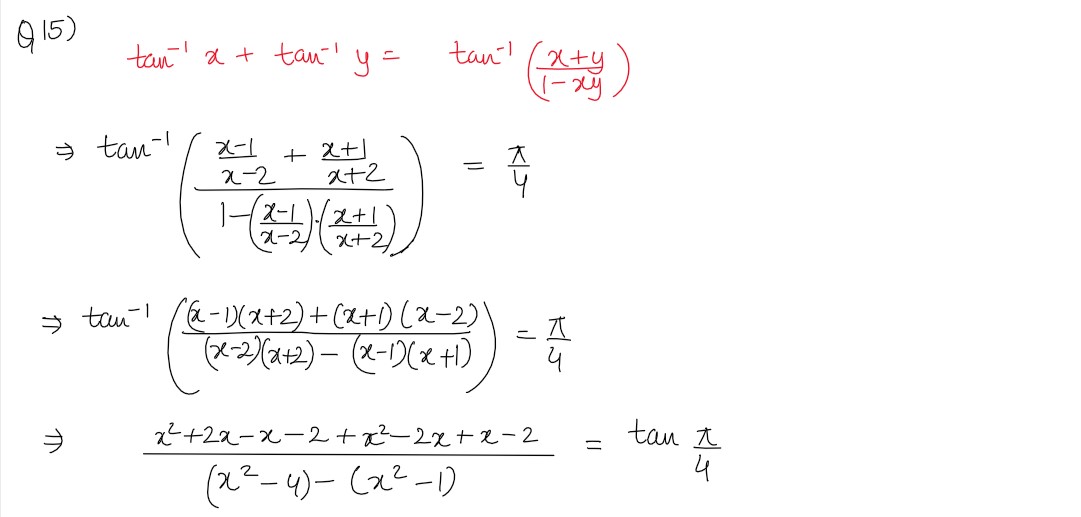 Q15)
tan⁻¹ x + tan⁻¹ y = tan⁻¹ ((x+y)/(1-xy))
⇒ tan⁻¹ (((x-1)/(x-2) + (x+1)/(x+2))/(1-((x-1)/(x-2))·((x+1)/(x+2)))) = π/4
⇒ tan⁻¹ (((x-1)(x+2)+(x+1)(x-2))/((x-2)(x+2)-(x-1)(x+1))) = π/4
⇒ (x²+2x-x-2+x²-2x+x-2)/((x²-4)-(x²-1)) = tan π/4